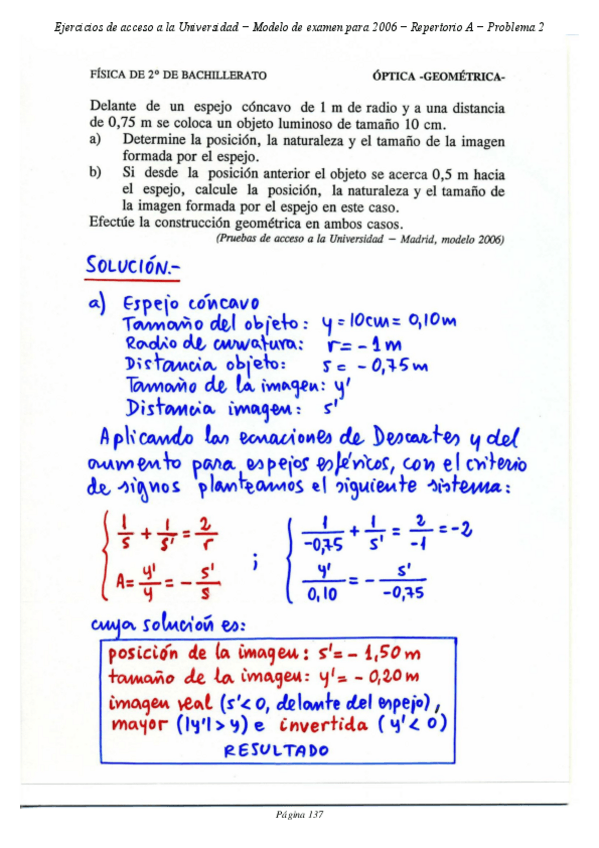 Ejercicios de acceso a la Universidad − Modelo de examen para 2006 − Repertorio A − Problema 2
FÍSICA DE 2º DE BACHILLERATO ÓPTICA -GEOMÉTRICA-
Delante de un espejo cóncavo de 1 m de radio y a una distancia
de 0,75 m se coloca un objeto luminoso de tamaño 10 cm.
a) Determine la posición, la naturaleza y el tamaño de la imagen
formada por el espejo.
b) Si desde la posición anterior el objeto se acerca 0,5 m hacia
el espejo, calcule la posición, la naturaleza y el tamaño de
la imagen formada por el espejo en este caso.
Efectúe la construcción geométrica en ambos casos.
(Pruebas de acceso a la Universidad − Madrid, modelo 2006)
SOLUCIÓN.-
a) Espejo cóncavo
Tamaño del objeto: y = 10cm = 0,10 m
Radio de curvatura: r = - 1 m
Distancia objeto: s = - 0,75 m
Tamaño de la imagen: y'
Distancia imagen: s'
Aplicando las ecuaciones de Descartes y del
aumento para espejos esféricos, con el criterio
de signos planteamos el siguiente sistema:
{ 1/s + 1/s' = 2/r ; { 1/-0,75 + 1/s' = 2/-1 = -2
A = y'/y = - s'/s y'/0,10 = - s'/-0,75
cuya solución es:
posición de la imagen: s' = - 1,50 m
tamaño de la imagen: y' = - 0,20 m
imagen real (s' < 0, delante del espejo),
mayor (|y'| > y) e invertida (y' < 0)
RESULTADO
Página 137